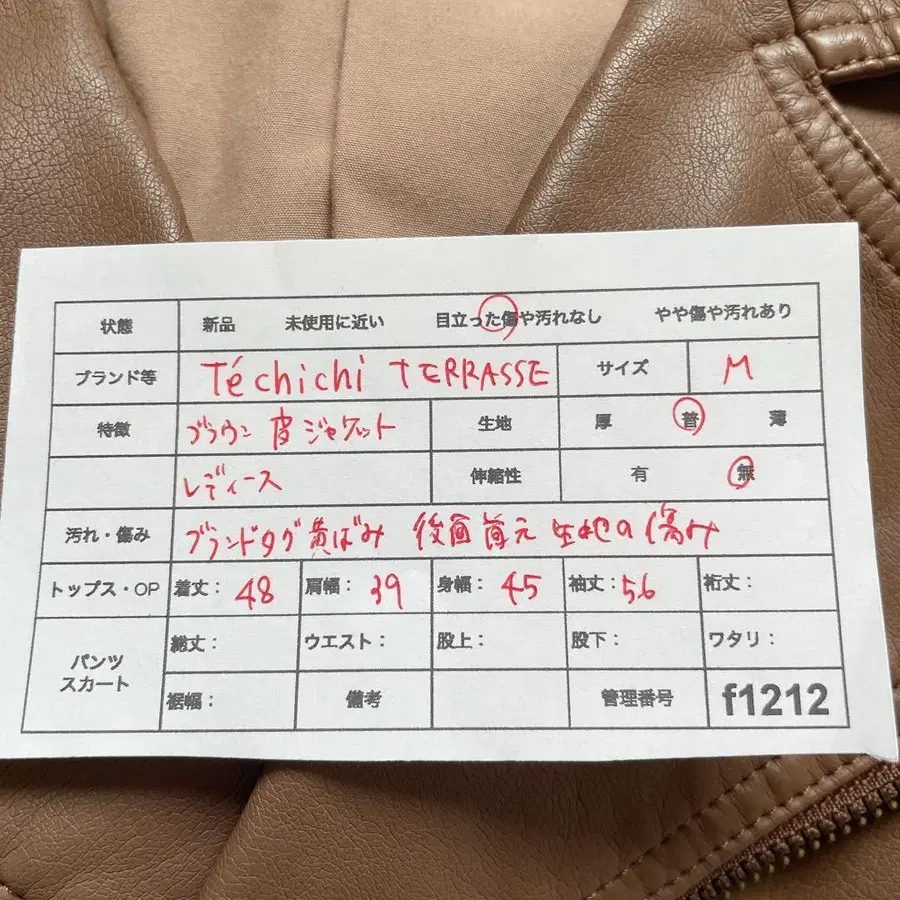 状態 新品 未使用に近い 目立った傷や汚れなし やや傷や汚れあり
ブランド等 Téchichi TERRASSE サイズ M
特徴 ブラウン 皮ジャケット 生地 厚 普 薄
レディース 伸縮性 有 無
汚れ・傷み ブランドタグ黄ばみ 後面首元 生地の傷み
トップス・OP 着丈: 48 肩幅: 39 身幅: 45 袖丈: 56 裄丈:
パンツ スカート 総丈: ウエスト: 股上: 股下: ワタリ:
裾幅: 備考 管理番号 f1212